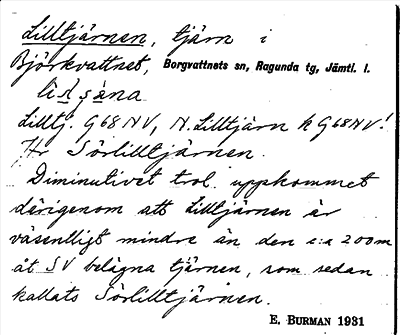 Lilltjärnen, tjärn i
Björkvattnet, Borgvattnets sn, Ragunda tg, Jämtl. l.
Lilltj. G68NV, N. Lilltjärn k G68NV!
Hr Sörlilltjärnen.
Diminutivet trol. uppkommet
därigenom att Lilltjärnen är
väsentligt mindre än den c:a 200m
åt SV belägna tjärnen, som sedan
kallats Sörlilltjärnen.
E. BURMAN 1931